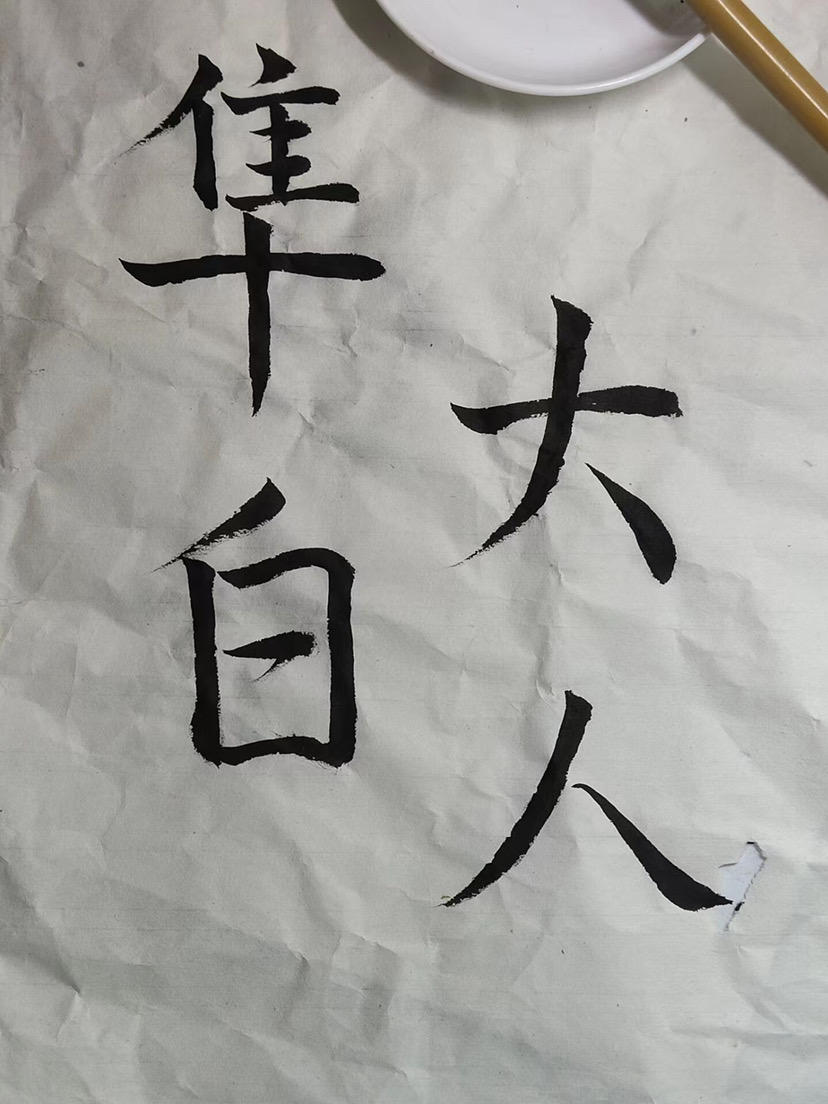 隼白
大人